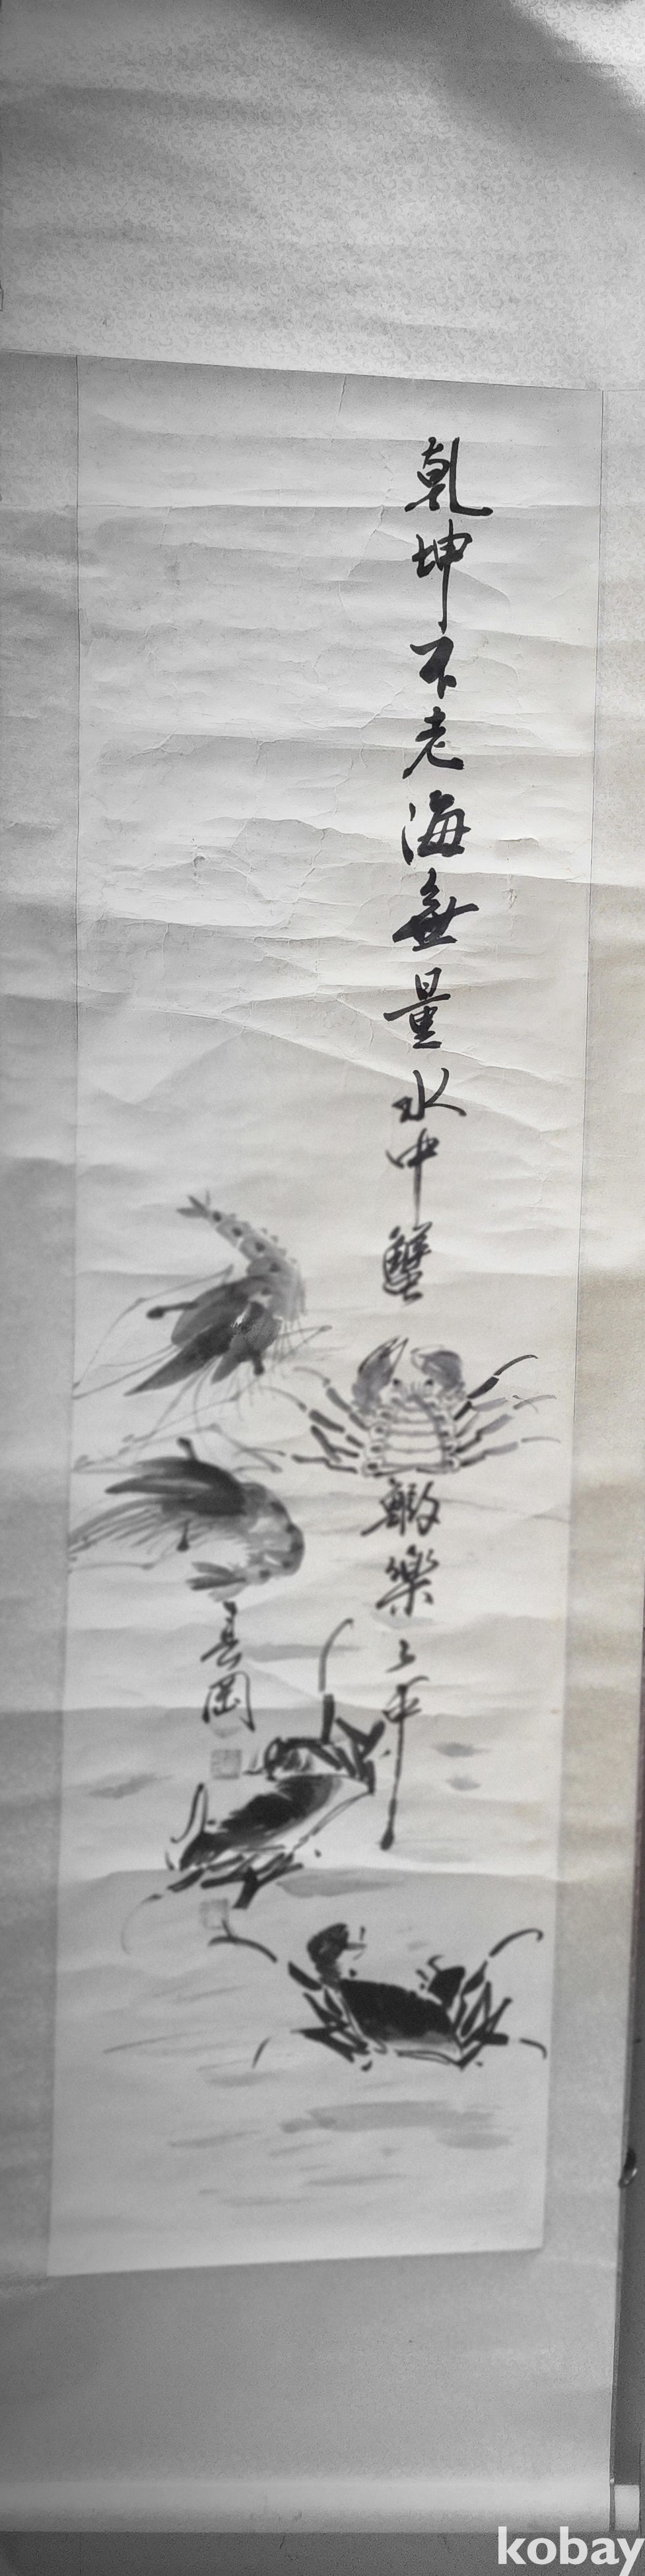 乾坤不老海無量水中蟹鰕樂上平
岡
kobay